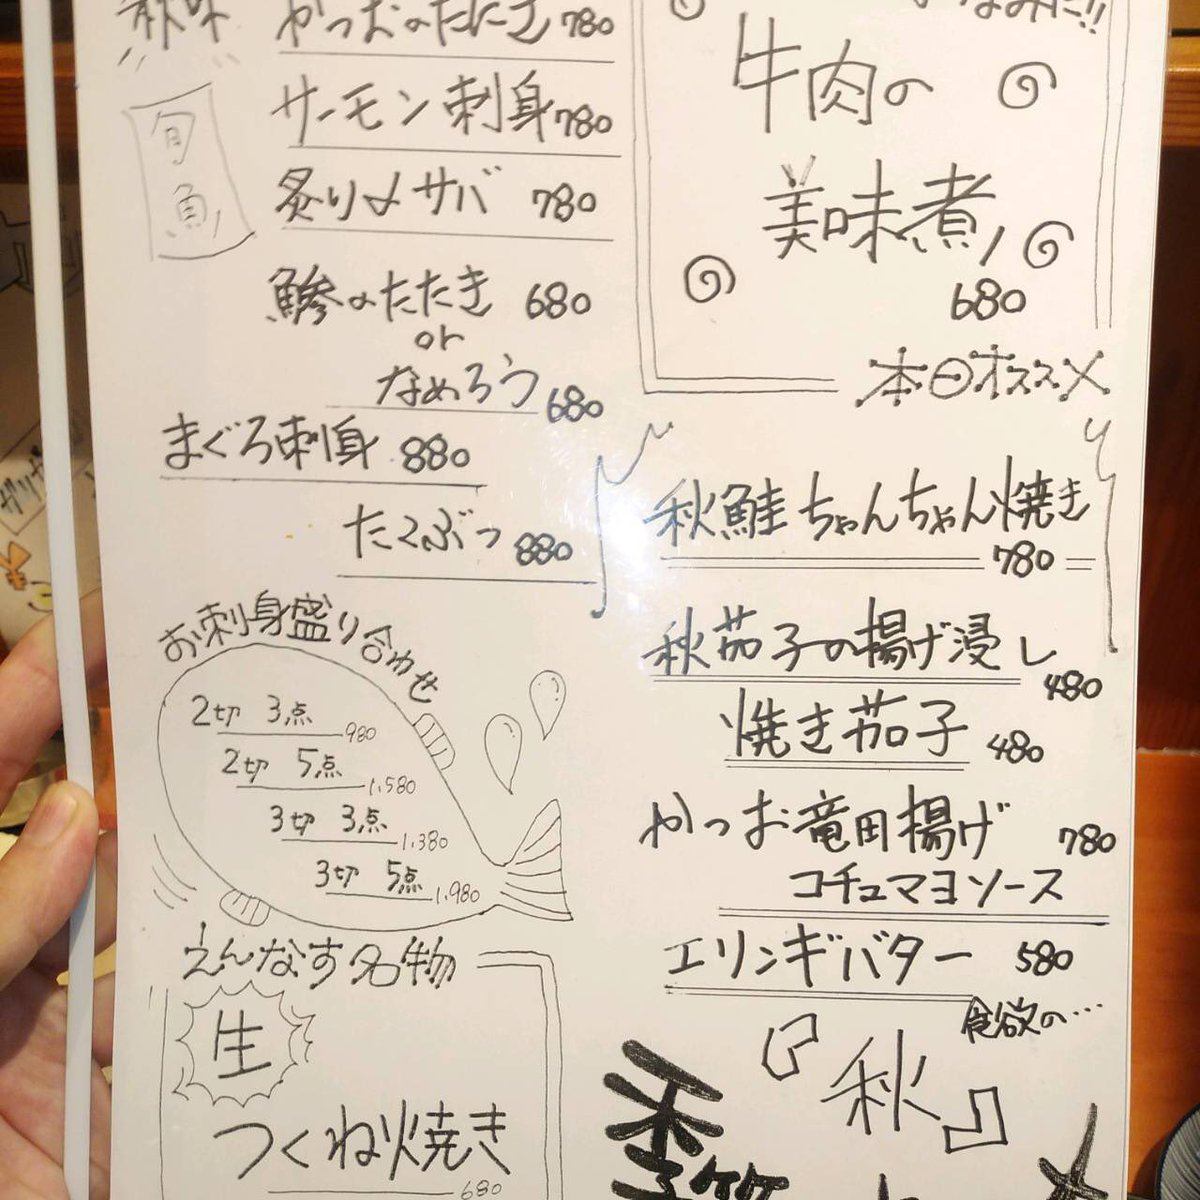 秋味
かつおのたたき 780
旬魚
サーモン刺身 780
炙り〆サバ 780
鯵のたたき 680
or
なめろう 680
まぐろ刺身 880
たくぶつ 880
お刺身盛り合わせ
2切 3点 980
2切 5点 1,580
3切 3点 1,380
3切 5点 1,980
えんなす名物
生
つくね焼き
680
牛肉の
美味煮
680
本日オススメ
秋鮭ちゃんちゃん焼き
780
秋茄子の揚げ浸し
480
焼き茄子 480
かつお竜田揚げ 780
コチュマヨソース
エリンギバター 580
食欲の…
『秋』
季節